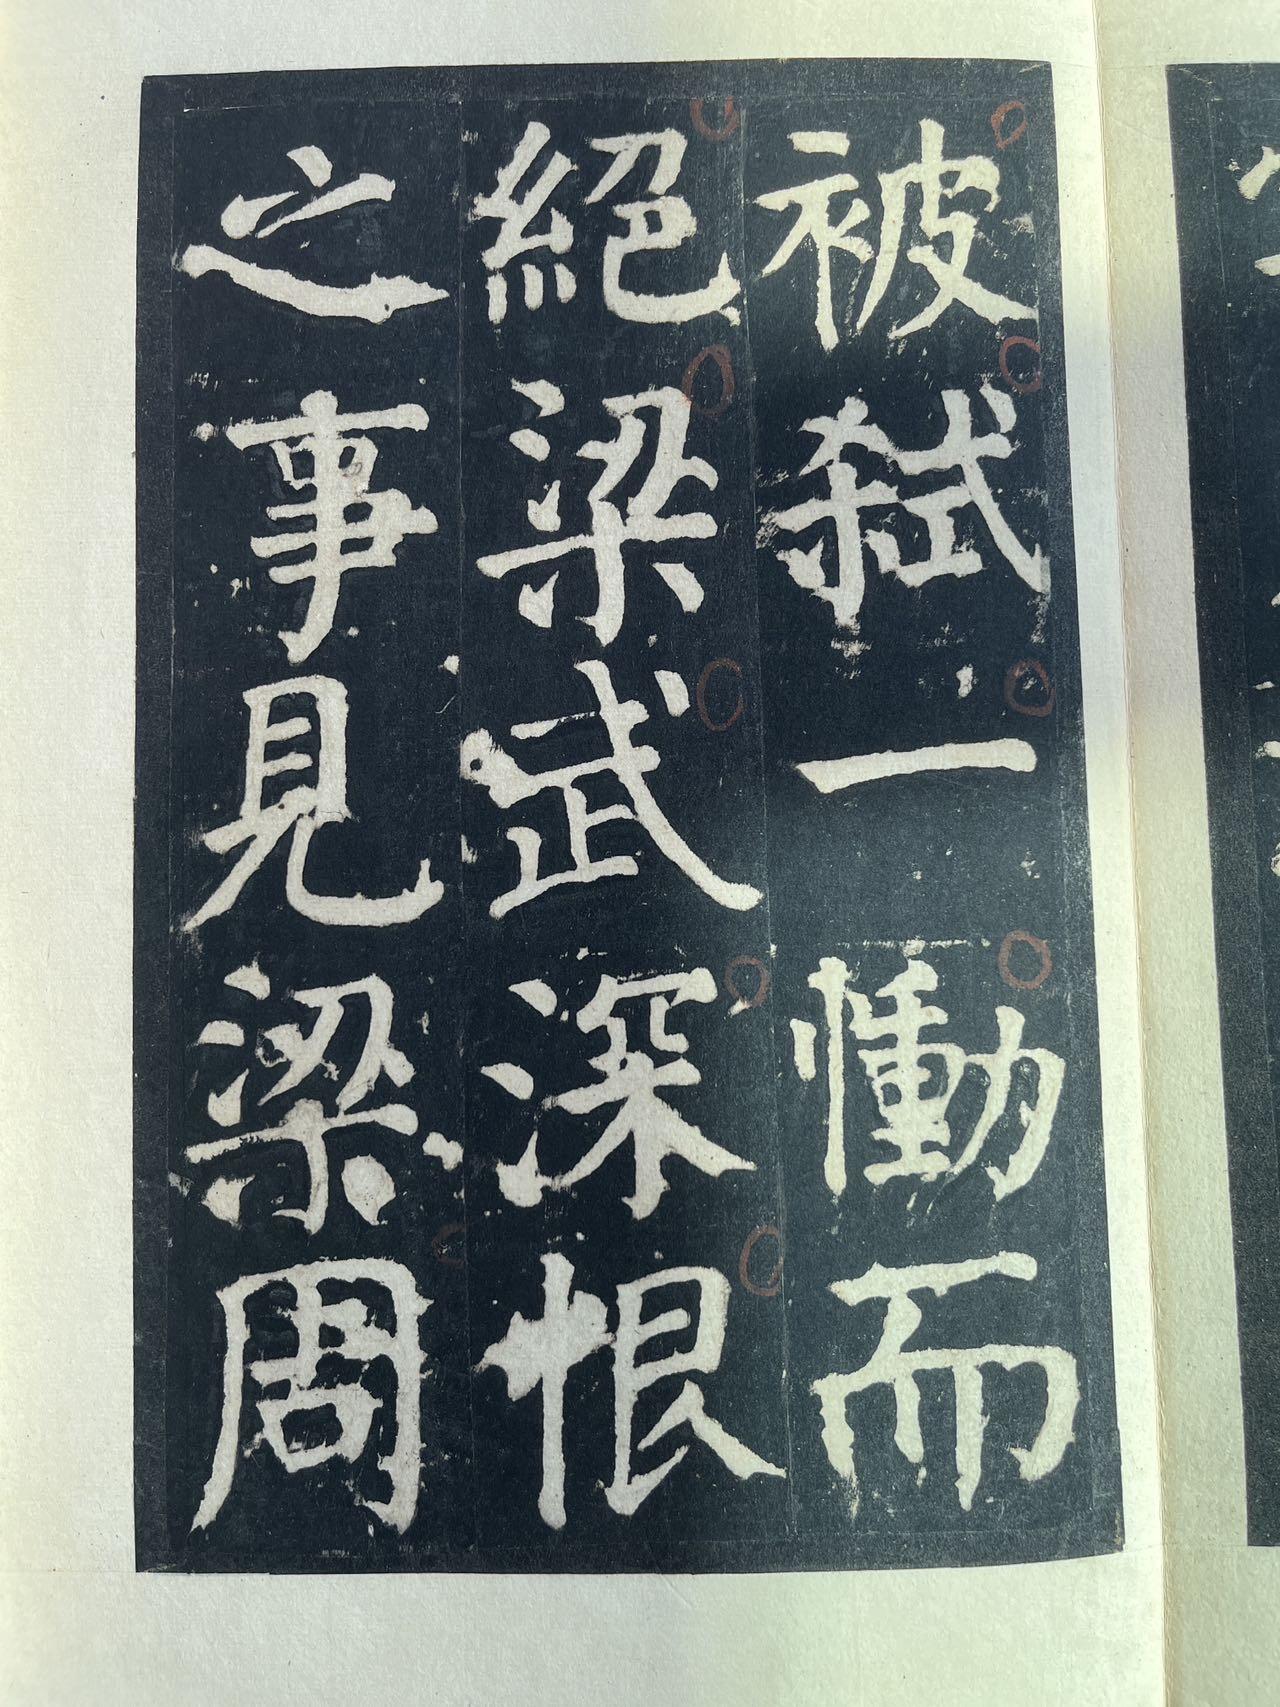 被弒一慟而
絕梁武深恨
之事見梁周